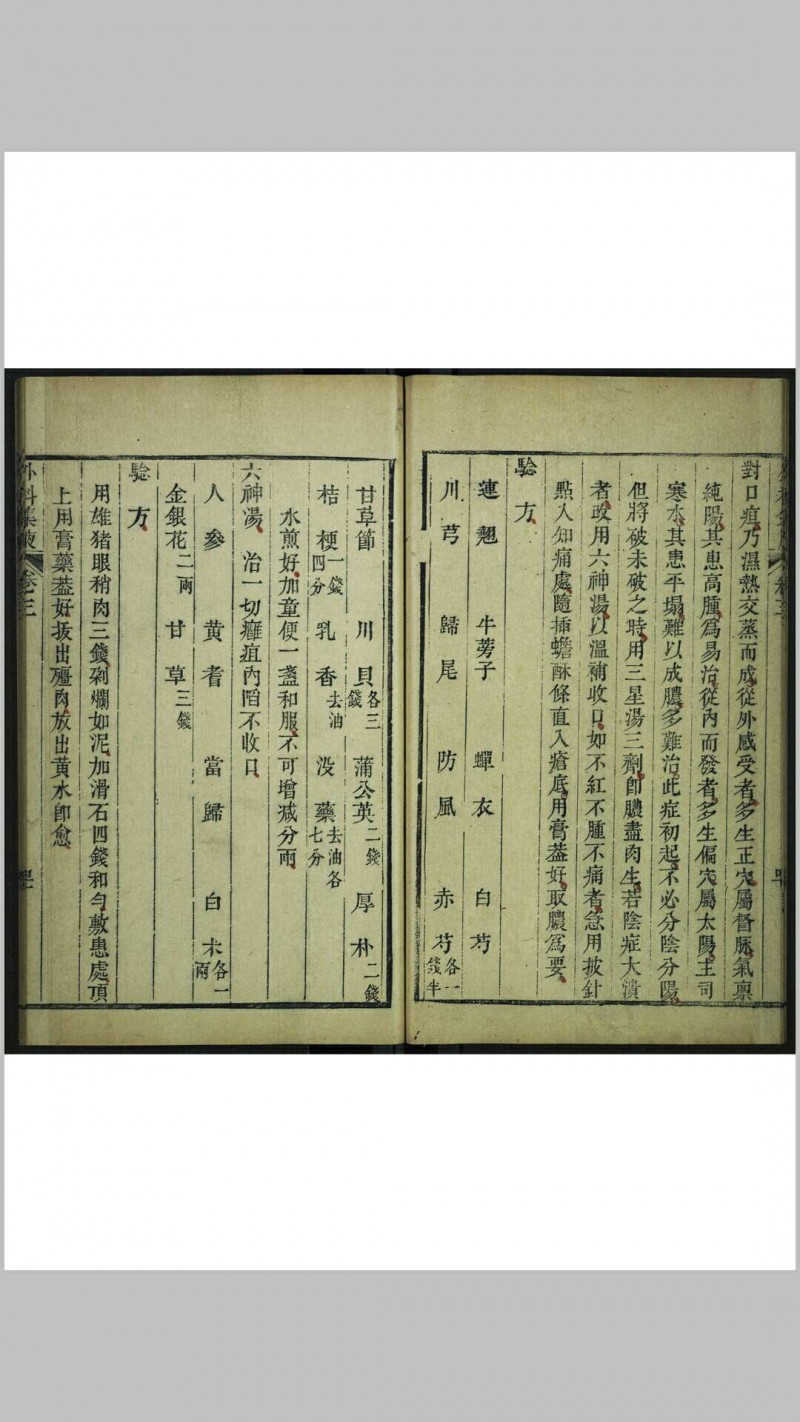 對口疽乃濕熱交蒸而成從外感受者多生正穴屬督脉氣禀
純陽其患高腫爲易治從內而發者多生偏穴屬太陽主司
寒水其患平塌難以成膿多難治此症初起不必分陰分陽
但將破未破之時用三星湯三劑卽膿盡肉生若陰症大潰
者政用六神湯以溫補收口如不紅不腫不痛者急用披針
點入知痛處隨揷蟾酥條直入瘡底用膏葢好取膿爲要
驗方
連翹 牛蒡子 蟬衣 白芍
川芎 歸尾 防風 赤芍各一錢半
甘草節 川貝各三錢 蒲公英二錢 厚朴二錢
桔梗一錢四分 乳香去油 没藥去油各七分
水煎好加童便一盞和服不可增减分兩
六神湯 治一切癰疽內陷不收口
人參 黃耆 當歸 白朮各一兩
金銀花二兩 甘草三錢
驗方
用雄猪眼稍肉三錢剁爛如泥加滑石四錢和勻敷患處頂
上用膏藥葢好拔出殭肉放出黃水卽愈
外科集腋 卷三